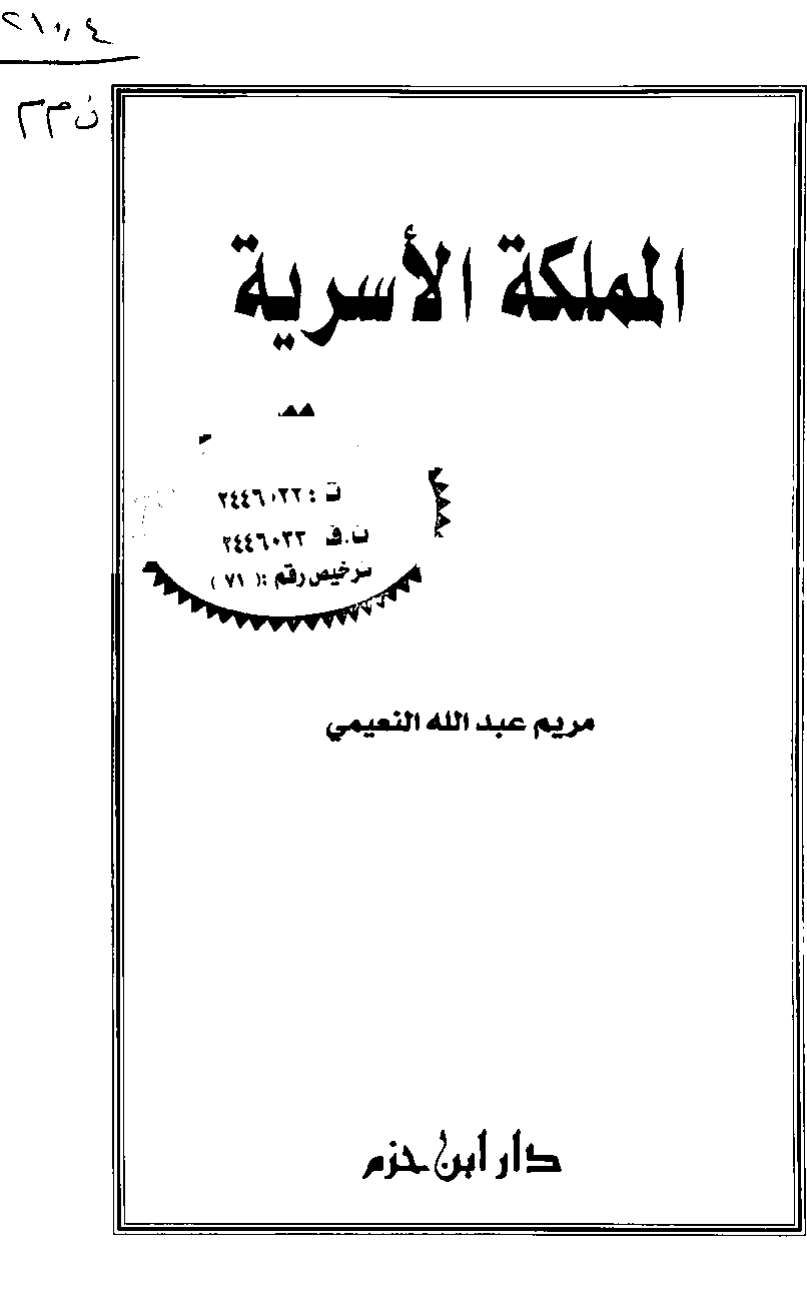 ٢١٠,٤
ن م ٣
المملكة الأسرية
ت : ٢٤٤٦٠٢٢
ن.ف ٢٤٤٦٠٣٣
ترخيص رقم :( ٧١ )
مريم عبد الله النعيمي
دار ابن حزم